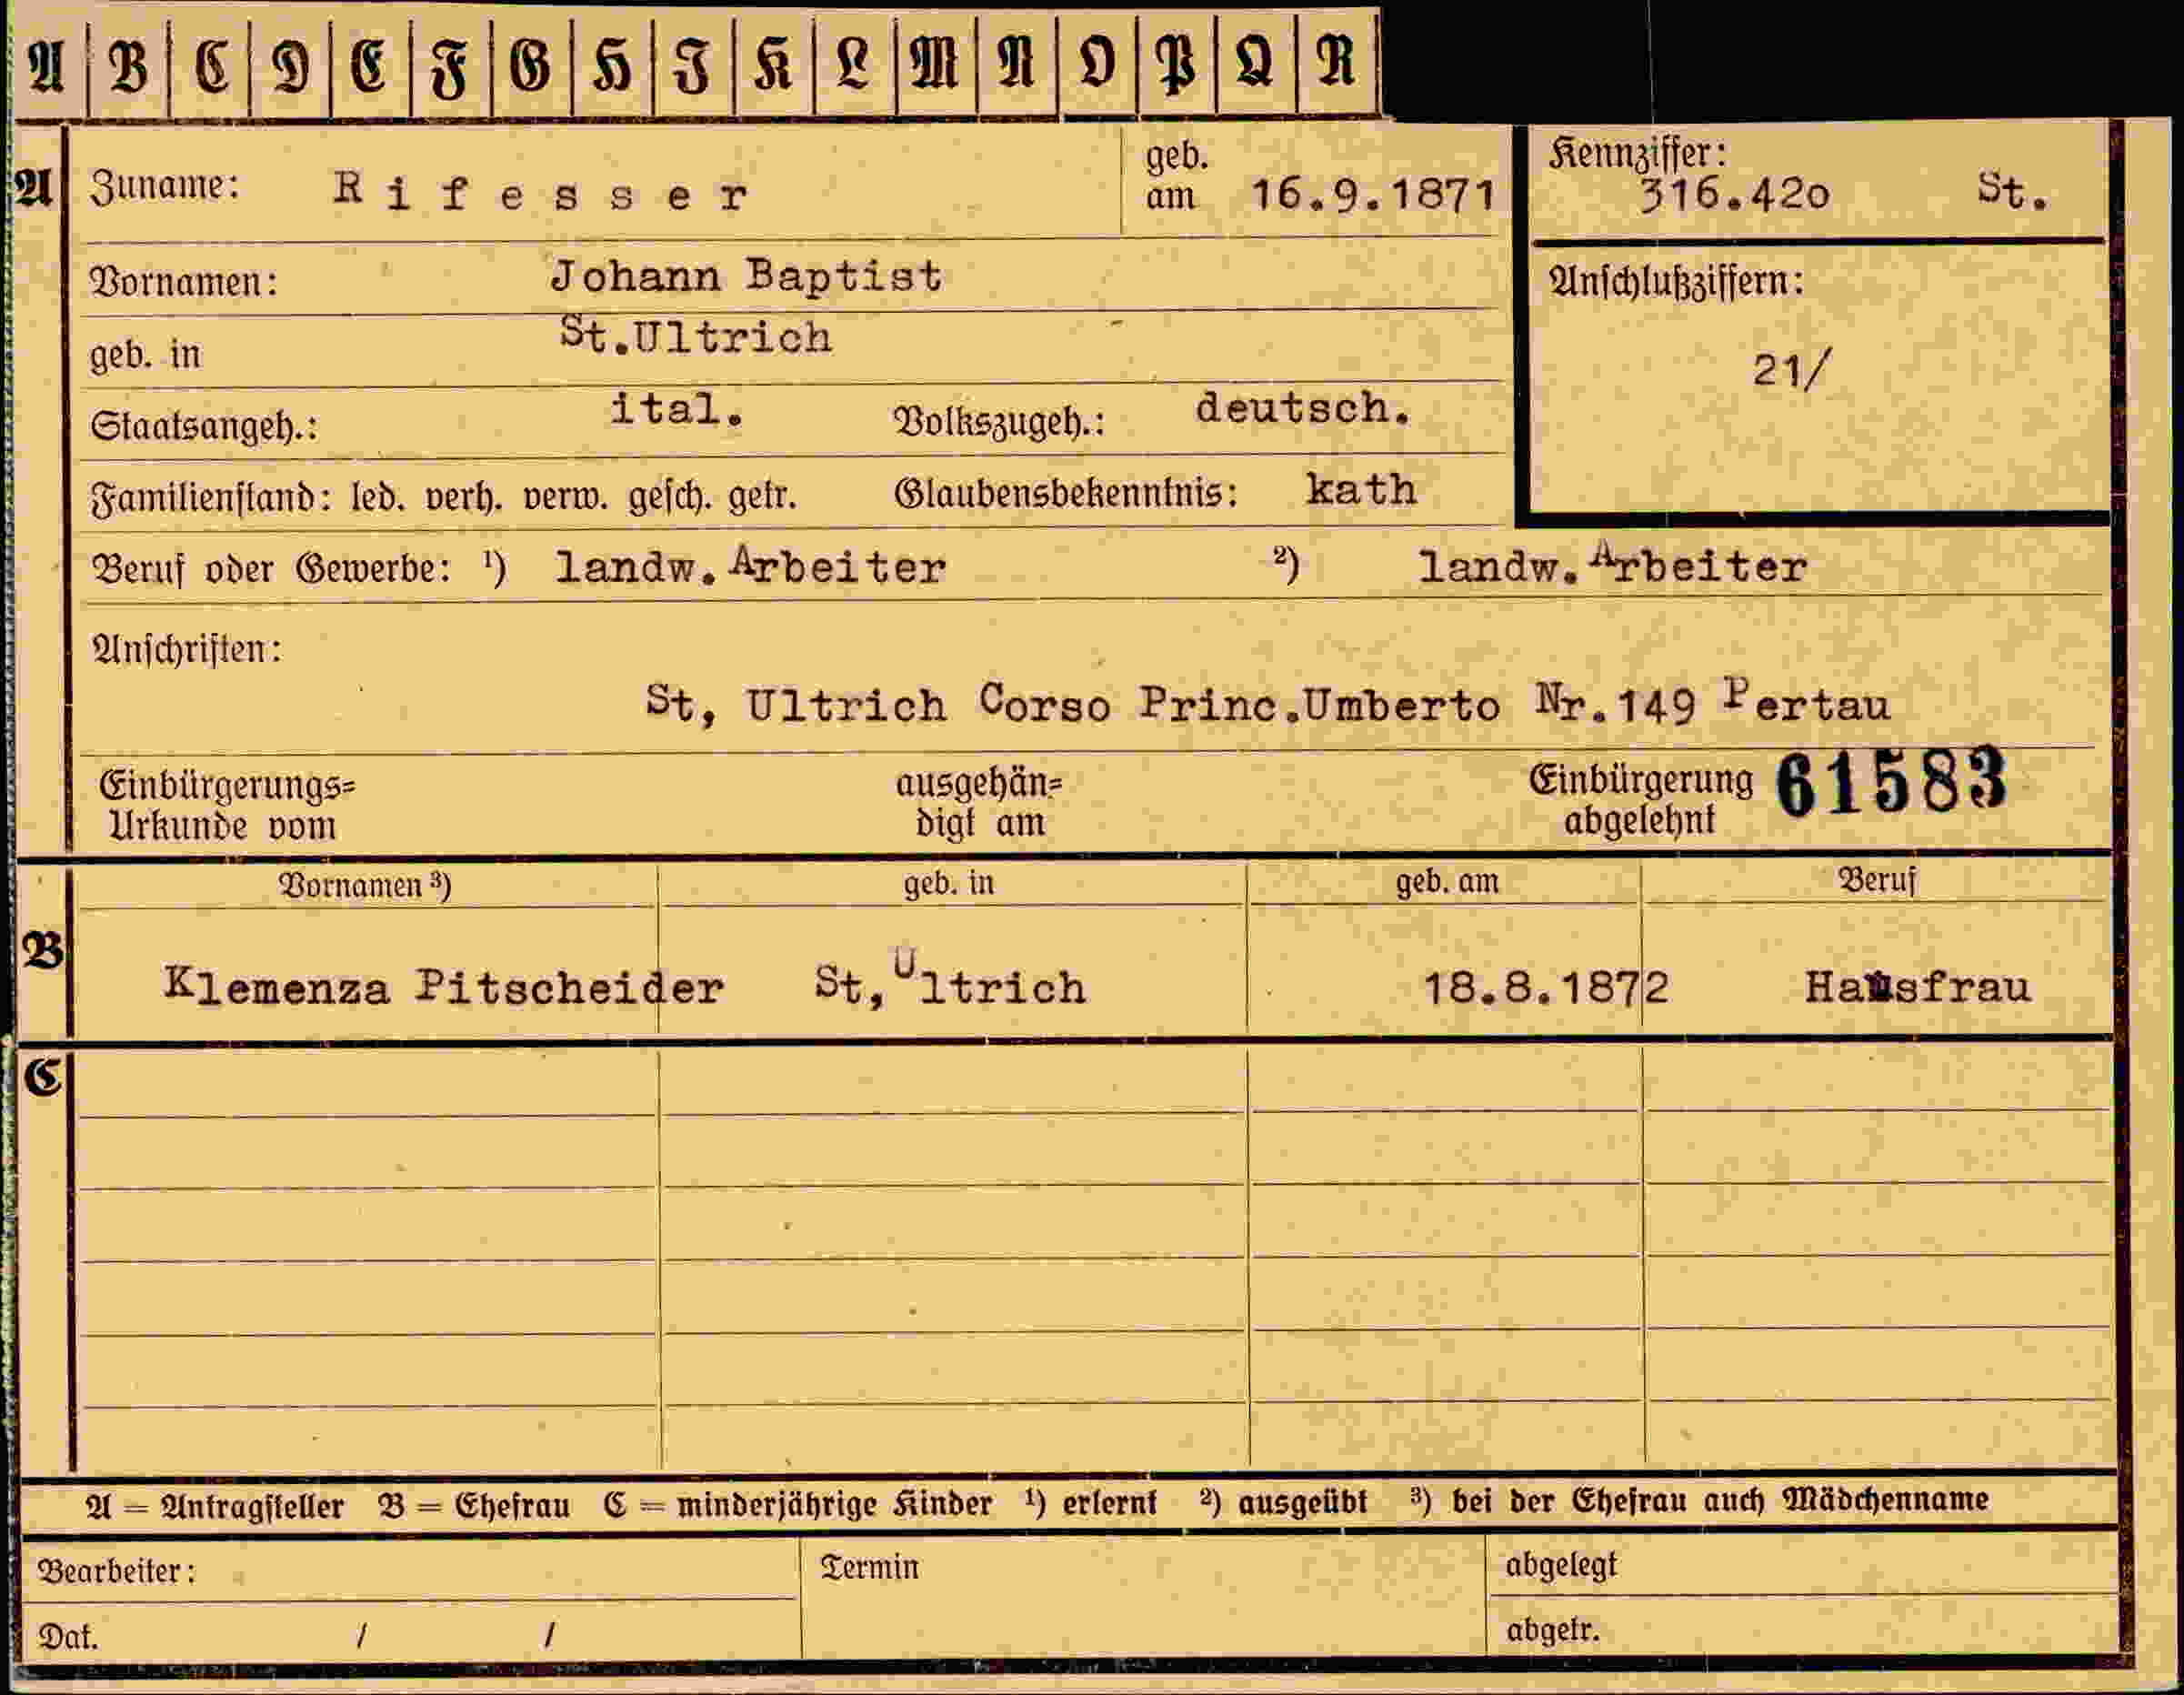 A B C D E F G H I K L M N O P Q R
A Zuname: Rifesser geb. am 16.9.1871 Kennziffer: 316.420 St.
Vornamen: Johann Baptist Anschlußziffern:
geb. in St.Ultrich 21/
Staatsangeh.: ital. Volkszugeh.: deutsch.
Familienstand: led. verh. verw. gesch. getr. Glaubensbekenntnis: kath
Beruf oder Gewerbe: ¹) landw.Arbeiter ²) landw.Arbeiter
Anschriften:
St, Ultrich Corso Princ.Umberto Nr.149 Pertau
Einbürgerungs= ausgehän= Einbürgerung 61583
Urkunde vom digt am abgelehnt
Vornamen ³) geb. in geb. am Beruf
B Klemenza Pitscheider St,Ultrich 18.8.1872 Hausfrau
C
A = Antragsteller B = Ehefrau C = minderjährige Kinder ¹) erlernt ²) ausgeübt ³) bei der Ehefrau auch Mädchenname
Bearbeiter: Termin abgelegt
Dat. / / abgetr.